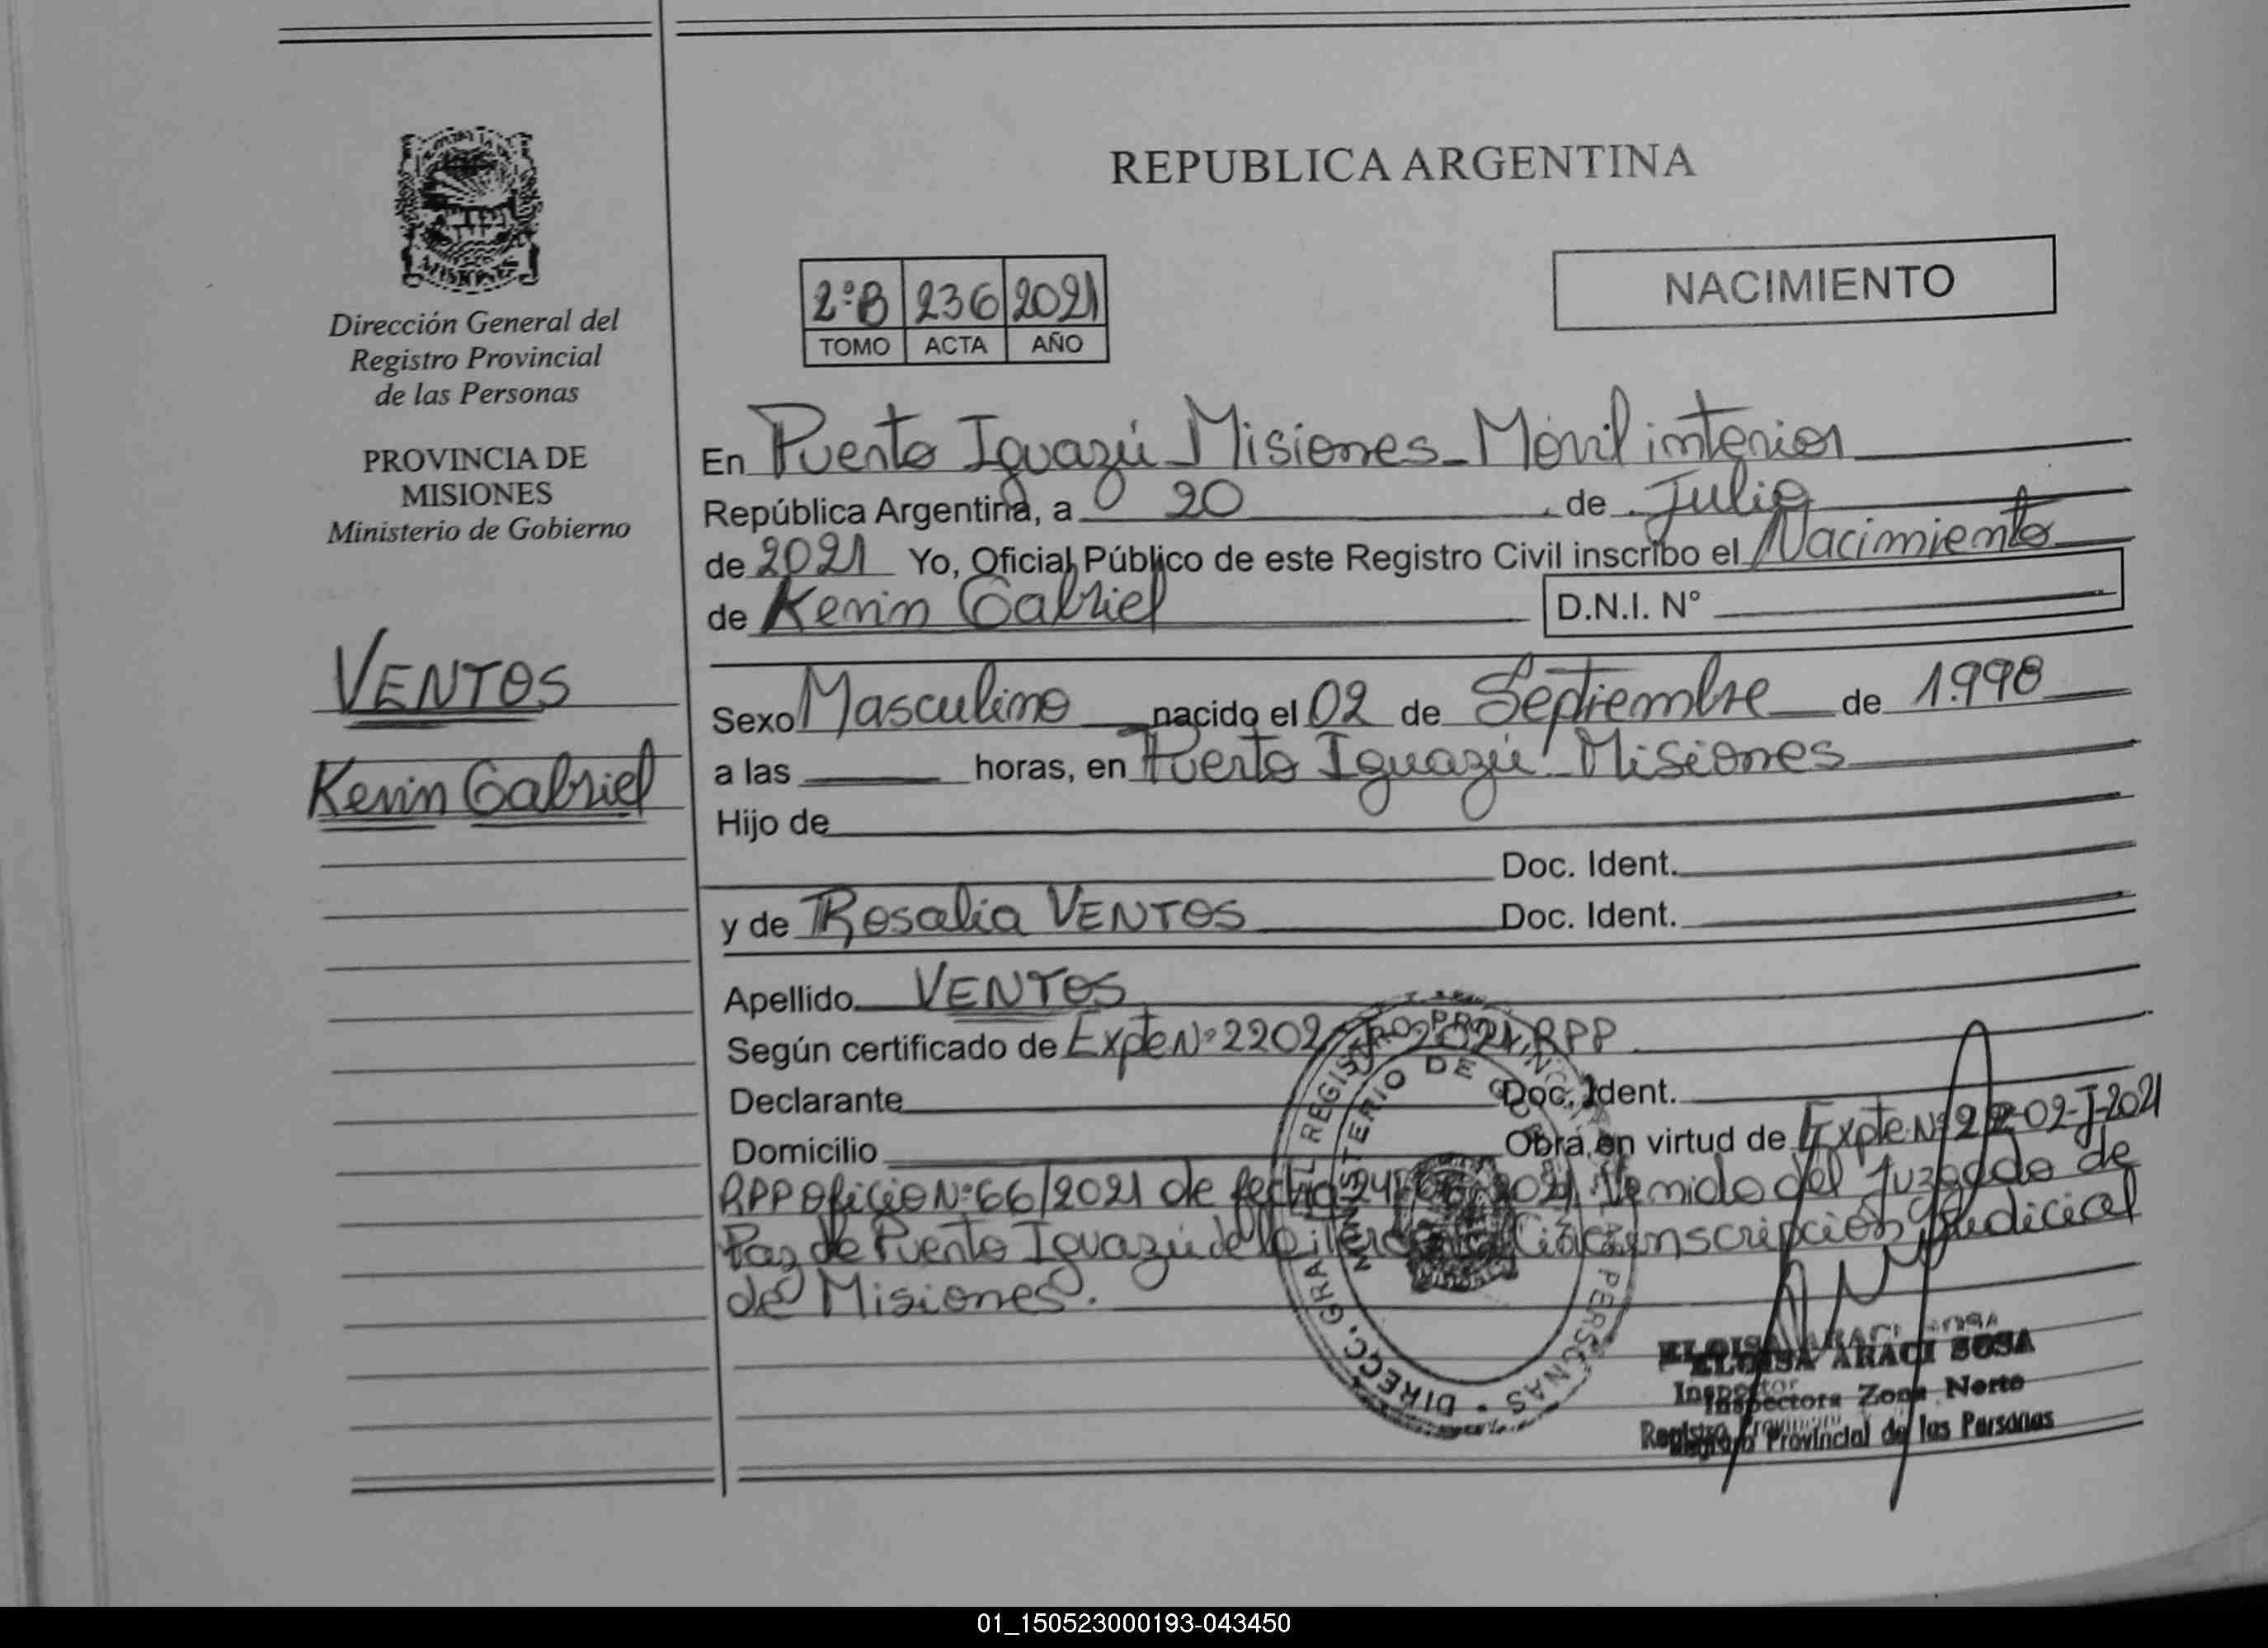 REPUBLICA ARGENTINA
NACIMIENTO
2ºB 236 2021
TOMO ACTA AÑO
MISIONES
Dirección General del
Registro Provincial
de las Personas
PROVINCIA DE
MISIONES
Ministerio de Gobierno
VENTOS
Kevin Gabriel
En Puerto Iguazú Misiones - Móvil interior
República Argentina, a 20 de Julio
de 2021 Yo, Oficial Público de este Registro Civil inscribo el Nacimiento
de Kevin Gabriel D.N.I. Nº
Sexo Masculino nacido el 02 de Septiembre de 1.998
a las horas, en Puerto Iguazú Misiones
Hijo de
Doc. Ident.
y de Rosalia VENTOS Doc. Ident.
Apellido VENTOS
Según certificado de Expte Nº 2202-J-2021, RPP
Declarante Doc. Ident.
Domicilio Obra en virtud de Expte Nº 2202-J-2021
RPP Oficio Nº 66/2021 de fecha 24 2021 Venido del Juzgado de
Paz de Puerto Iguazú de la Circunscripción Judicial
de Misiones.
DIRECC. GRAL. REGISTRO PROVINCIAL PERSONAS
MINISTERIO DE
ELOISA ARACI SOSA
Inspectora Zona Norte
Registro Provincial de las Personas
01_150523000193-043450